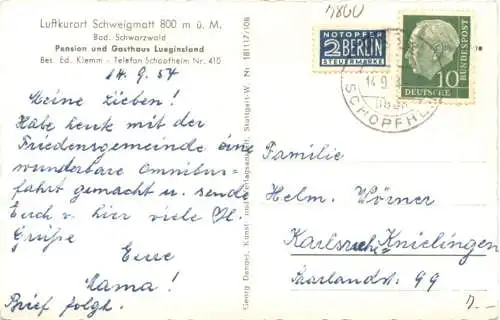 Luftkurort Schweigmatt 800 m ü. M.
Bad. Schwarzwald
Pension und Gasthaus Lueginsland
Bes. Ed. Klemm - Telefon Schopfheim Nr. 410
14.9.57
Meine Lieben!
Habe heute mit der
Friedensgemeinde eine
wunderbare Omnibus-
fahrt gemacht u. sende
Euch v. hier viele hl.
Grüße
Eure
Mama!
Brief folgt.
Georg Dangel, Kunst- und Verlagsanstalt, Stuttgart-W. Nr. 18111?/108
4800
NOTOPFER
2 BERLIN
STEUERMARKE
DEUTSCHE
BUNDESPOST
10
14.9.
SCHOPFHE
Familie
Helm. Wörner
Karlsruhe Knielingen
Saarlandstr. 99